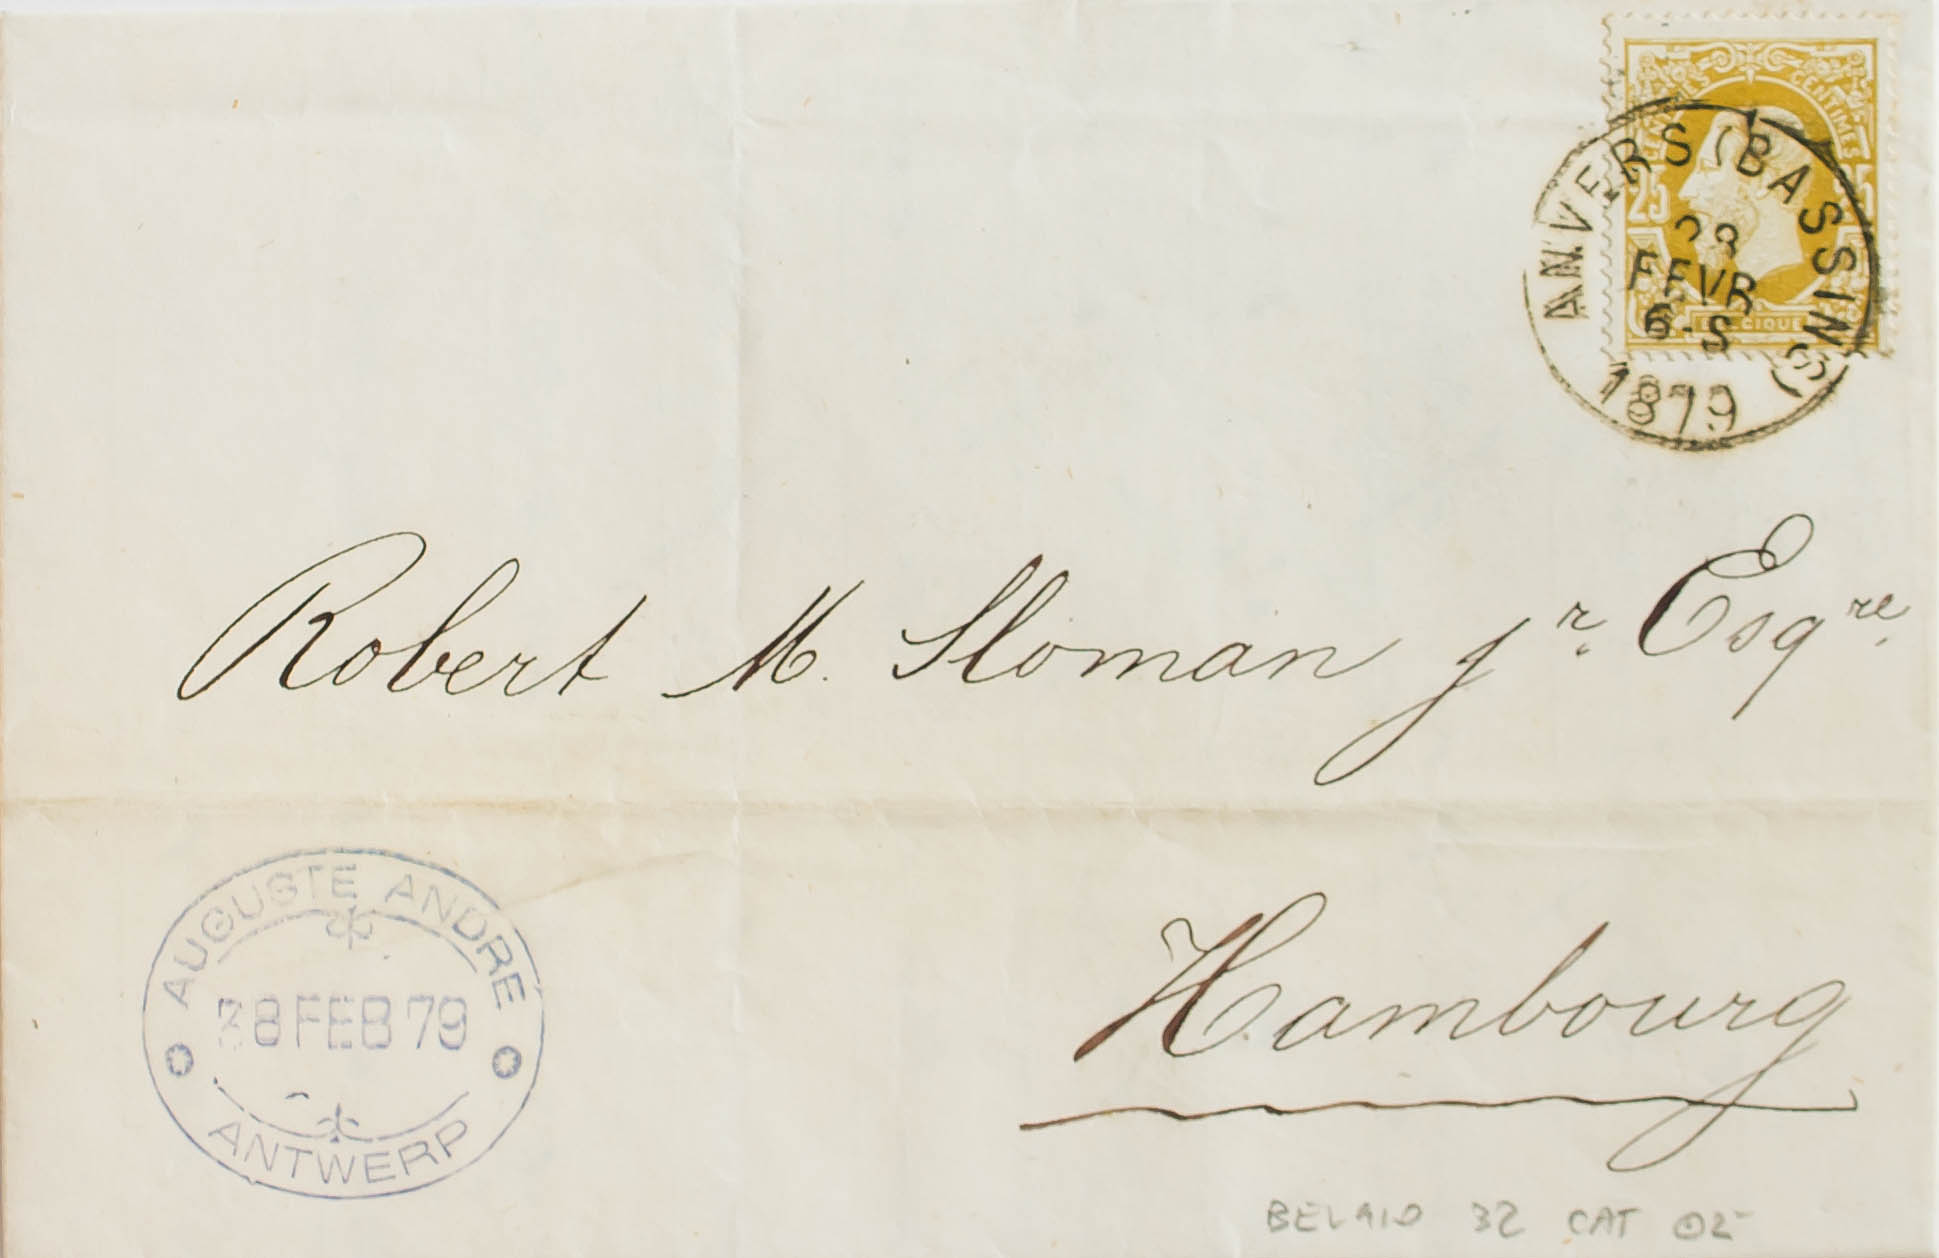 CENTIMES CENTIMES
25 25
BELGIQUE
ANVERS (BASSINS)
28
FEVR
6-S
1879
Robert M. Sloman jr. Esqre.
Hambourg
AUGUSTE ANDRE
28 FEB 79
ANTWERP
32 CAT